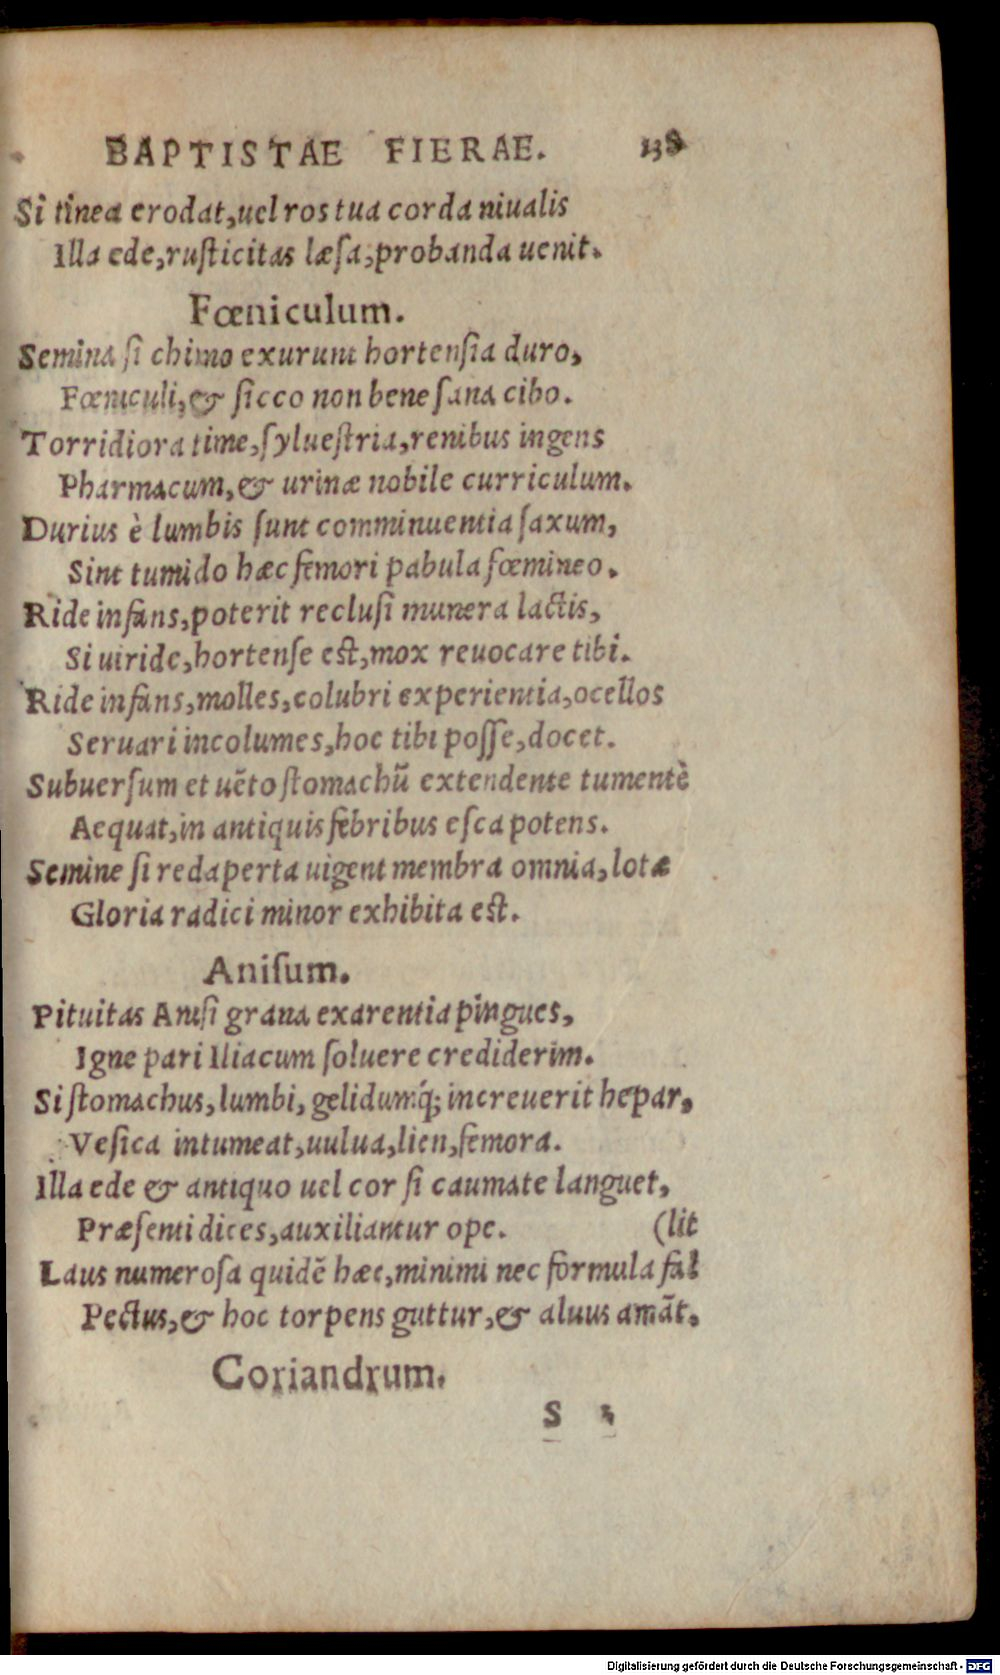 BAPTISTAE FIERAE. 138
Si tinea erodat, uel ros tua corda niualis
Illa ede, rusticitas læsa, probanda uenit.
Fœniculum.
Semina si chimo exurunt hortensia duro,
Fœniculi, & sicco non bene sana cibo.
Torridiora time, syluestria, renibus ingens
Pharmacum, & urinæ nobile curriculum.
Durius è lumbis sunt comminuentia saxum,
Sint tumido hæc femori pabula fœmineo.
Ride infans, poterit reclusi munera lactis,
Si uiride, hortense est, mox reuocare tibi.
Ride infans, molles, colubri experientia, ocellos
Seruari incolumes, hoc tibi posse, docet.
Subuersum et uẽto stomachũ extendente tumentẽ
Aequat, in antiquis febribus esca potens.
Semine si redaperta uigent membra omnia, lotæ
Gloria radici minor exhibita est.
Anisum.
Pituitas Anisi grana exarentia pingues,
Igne pari Iliacum soluere crediderim.
Si stomachus, lumbi, gelidumq́; increuerit hepar,
Vesica intumeat, uulua, lien, femora.
Illa ede & antiquo uel cor si caumate languet,
Præsenti dices, auxiliantur ope. (lit
Laus numerosa quidẽ hæc, minimi nec formula fal
Pectus, & hoc torpens guttur, & aluus amãt.
Coriandrum.
S 2
Digitalisierung gefördert durch die Deutsche Forschungsgemeinschaft - DFG